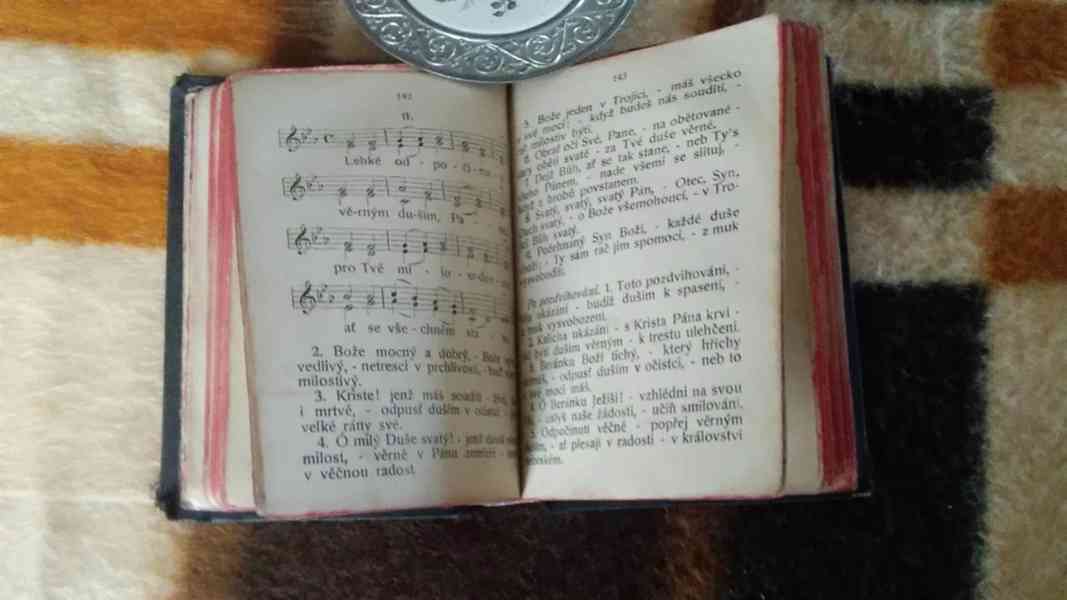 142
II.
Lehké od - po - či - nu
věr-ným du-ším, Pa
pro Tvé mi - lo - srden
ať se vše - chněm sta
2. Bože mocný a dobrý, - Bože
vedlivý, - netresci v prchlivosti, - buď
milostivý.
3. Kriste! jenž máš souditi - živé
i mrtvé, - odpusť duším v očistci
velké rány své.
4. Ó milý Duše svatý! - jenž dáváš
milost, - věrné v Pánu zemřelé
v věčnou radost.
143
5. Bože jeden v Trojici, - máš všecko
v své moci! - když budeš nás souditi, -
milostiv býti.
6. Obrať oči Své, Pane, - na obětované -
dary oběti svaté - za Tvé duše věrné.
7. Dejž Bůh, ať se tak stane, - neb Ty's
Pánem, - nade všemi se slituj, -
když z hrobů povstanem.
8. Svatý, svatý, svatý Pán, - Otec, Syn,
Duch svatý, - o Bože všemohoucí, - v Tro-
Bůh svatý.
9. Požehnaný Syn Boží, - každé duše
- Ty sám rač jim spomoci, - z muk
vysvoboditi.
Po pozdvihování. 1. Toto pozdvihování, -
ukázání - budiž duším k spasení, -
z muk vysvobození.
2. Kalicha ukázání - s Krista Pána krví -
býti duším věrným - k trestu ulehčení.
3. Beránku Boží tichý, - který hříchy
- odpusť duším v očistci, - neb to
v své moci máš.
4. Ó Beránku Ježíši! - vzhlédni na svou
- uslyš naše žádosti, - učiň smilování.
5. Odpočinutí věčné - popřej věrným
- ať plesají v radosti - v království